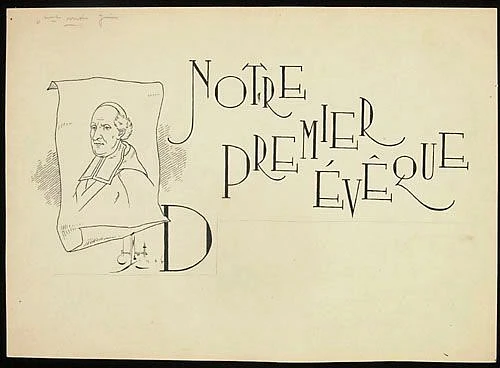 NOTRE
PREMIER
ÉVÊQUE
D